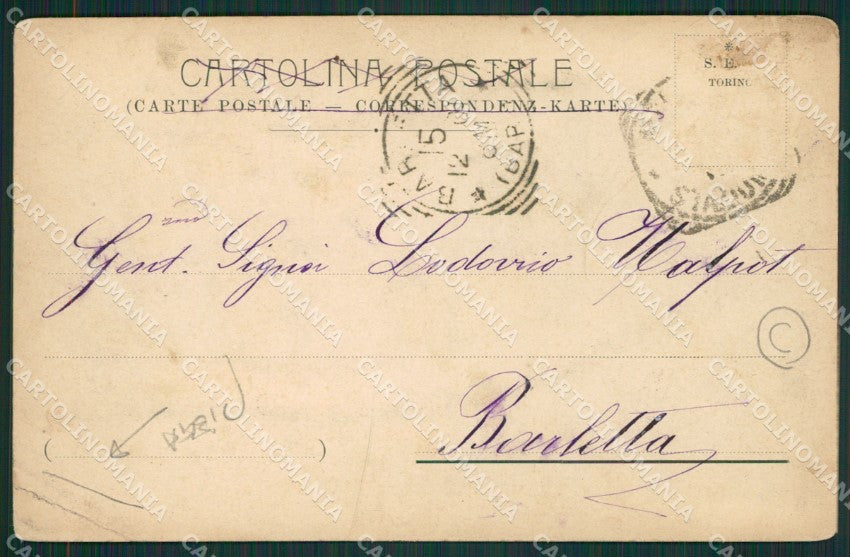 CARTOLINA POSTALE
(CARTE POSTALE — CORRESPONDENZ-KARTE)
S. E.
TORINO
BARLETTA
15
12
(BAR
Gent.mo Signor Lodovico
Barletta
(
)
C
CARTOLINOMANIA